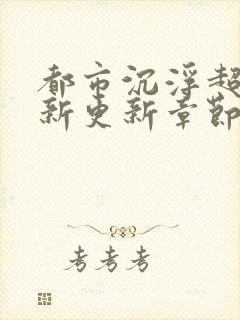 都市沉浮超
新更新章節
考考考